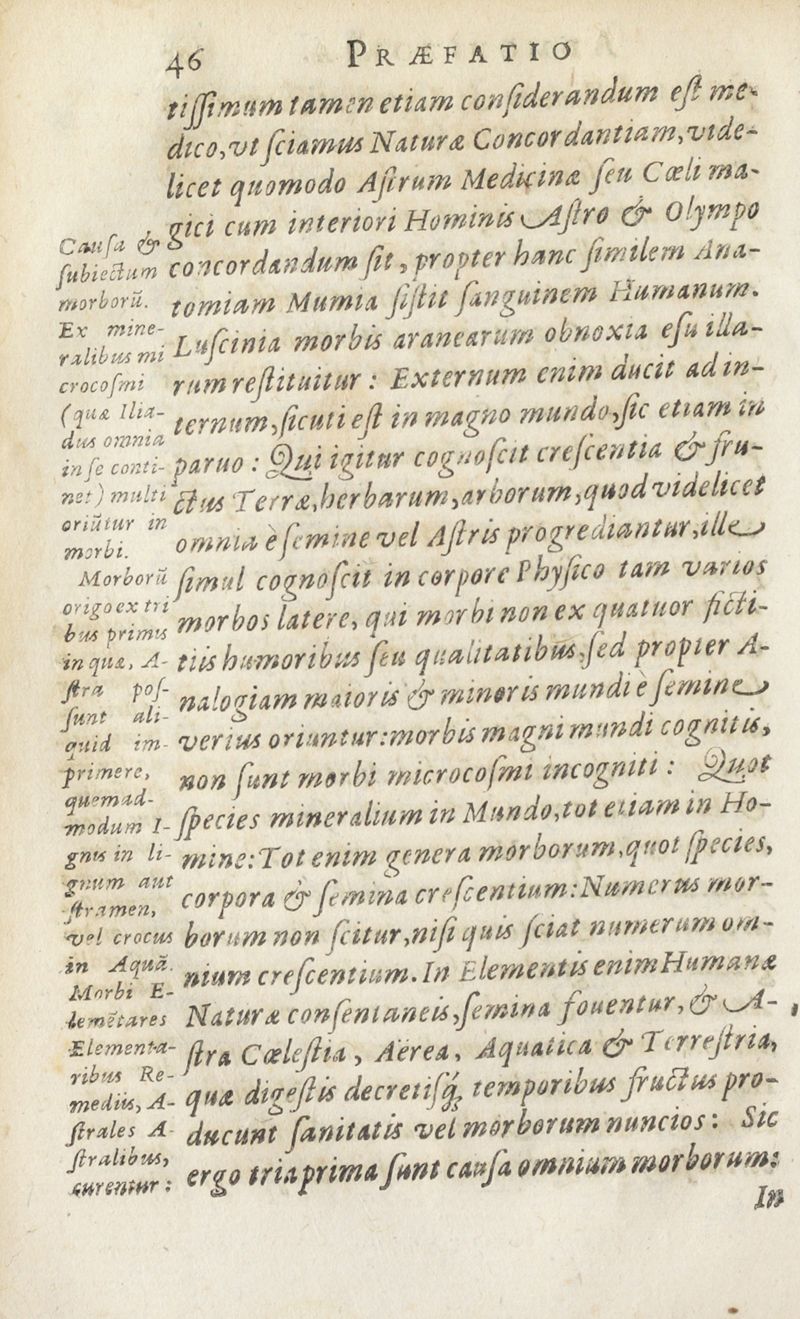 46
PRÆFATIO
tiſſimum tamen etiam conſiderandum eſt me-
dico,vt ſciamus Naturæ Concordantiam,vide-
licet quomodo Aſtrum Medicinæ ſeu Cœli ma-
gici cum interiori Hominis Aſtro & Olympo
concordandum ſit, propter hanc ſimilem Ana-
tomiam Mumia ſiſtit ſanguinem Humanum.
Luſcinia morbis aranearum obnoxia eſu illa-
rum reſtituitur: Externum enim ducit ad in-
ternum,ſicuti eſt in magno mundo,ſic etiam in
paruo: Qui igitur cognoſcit creſcentia & fru-
ctus Terræ,herbarum,arborum,quod videlicet
omnia è ſemine vel Aſtris progrediantur,ille
ſimul cognoſcit in corpore Phyſico tam varios
morbos latere, qui morbi non ex quatuor ficti-
tiis humoribus ſeu qualitatibus,ſed propter A-
nalogiam maioris & minoris mundi è ſemine
verius oriuntur:morbis magni mundi cognitis,
non ſunt morbi microcoſmi incogniti: Quot
ſpecies mineralium in Mundo,tot etiam in Ho-
mine:Tot enim genera morborum,quot ſpecies,
corpora & ſemina creſcentium:Numerus mor-
borum non ſcitur,niſi quis ſciat numerum om-
nium creſcentium.In Elementis enim Humanæ
Naturæ conſentaneis,ſemina fouentur,& A-
ſtra Cœleſtia, Aërea, Aquatica & Terreſtria,
quæ digeſtis decretiſq́; temporibus fructus pro-
ducunt ſanitatis vel morborum nuncios: Sic
ergo tria prima ſunt cauſa omnium morborum:
In
Cauſa &
ſubiectum
morborū.
Ex mine-
ralibus mi
crocoſmi
(quæ Ilia-
dus omnia
in ſe conti-
net) multi
oriūtur
morbi. in
Morborū
origo ex tri
bus primis
in quæ, A-
ſtra poſ-
ſunt ali-
quid im-
primere,
quemad-
modum I-
gnis in li-
gnum aut
ſtramen,
vel crocus
in Aquā.
Morbi E-
lemētares
Elementa-
ribus Re-
mediis, A-
ſtrales A-
ſtralibus,
curentur: